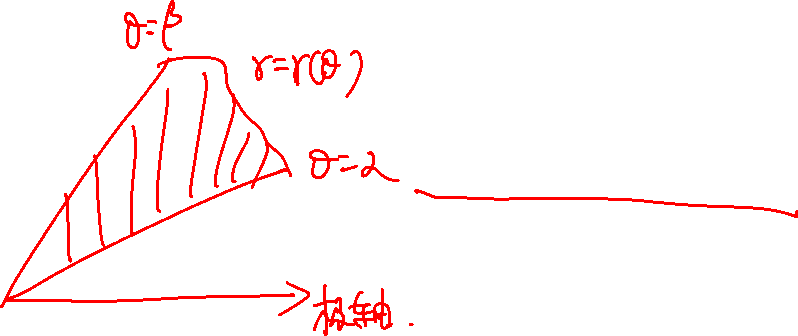 θ=β
r=r(θ)
θ=α
极轴.